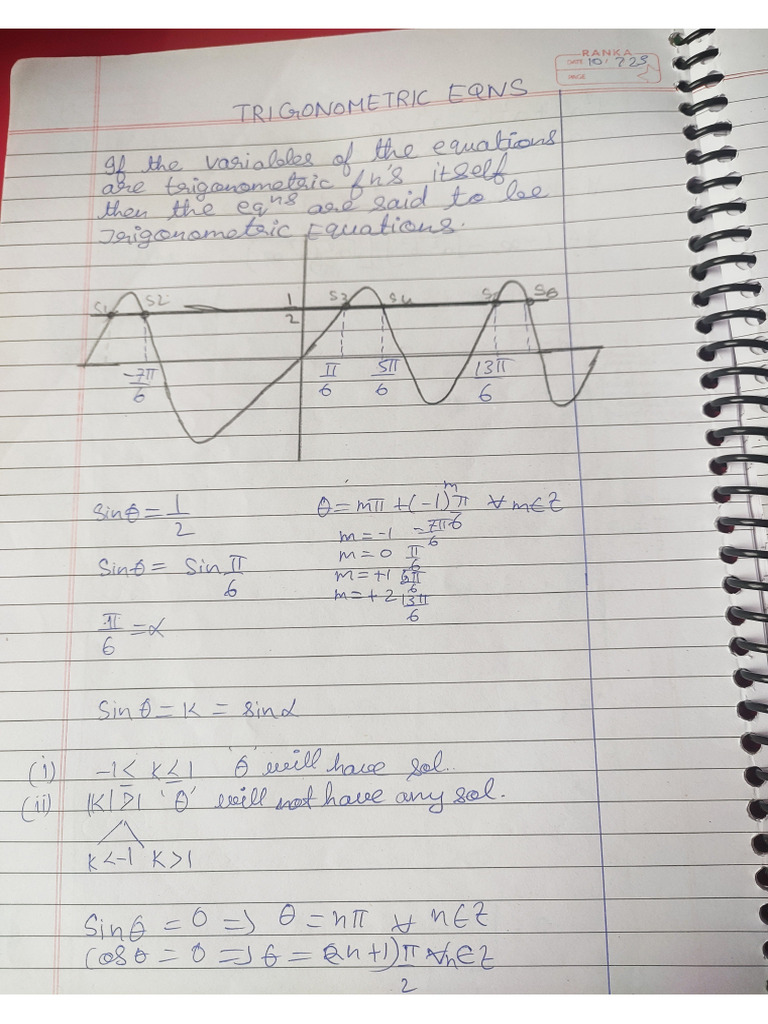 RANKA
DATE 10/7/23
PAGE
TRIGONOMETRIC EQNS
If the variables of the equations
are trigonometric fn's itself
then the eqns are said to be
Trigonometric Equations.
S1 S2 1/2 S3 S4 S5 S6
-7π/6 π/6 5π/6 13π/6
Sinθ = 1/2 θ = mπ + (-1)^m π/6 ∀ m∈Z
m = -1 = -7π/6
Sinθ = Sin π/6 m = 0 π/6
m = +1 5π/6
m = +2 13π/6
π/6 = α
Sinθ = K = sinα
(i) -1 ≤ K ≤ 1 'θ' will have sol.
(ii) |K| > 1 'θ' will not have any sol.
K < -1 K > 1
Sinθ = 0 => θ = nπ ∀ n∈Z
Cosθ = 0 => θ = (2n+1)π/2 ∀ n∈Z